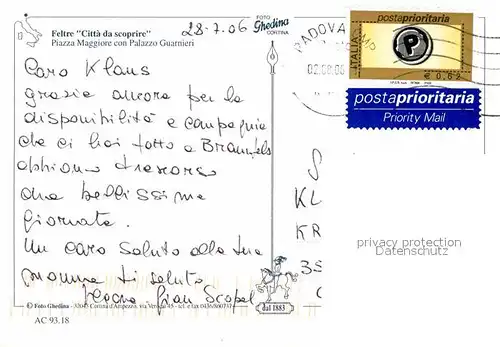 Feltre "Città da scoprire"
Piazza Maggiore con Palazzo Guarnieri
28-7.06
FOTO
Ghedina
CORTINA
Caro Klaus
grazie ancora per la
disponibilità e compagnia
che ci hai fatto a Braunfels
abbiamo trascorso
una bellissima
giornata.
Un caro saluto alla tua
mamma ti saluto
Gian
© Foto Ghedina - 32043 Cortina d'Ampezzo, via
AC 93.18
dal 1883
PADOVA CMP
02.08.06
postaprioritaria
ITALIA
P
€ 0,62
postaprioritaria
Priority Mail
S
KL
KR
35
privacy protection
Datenschutz